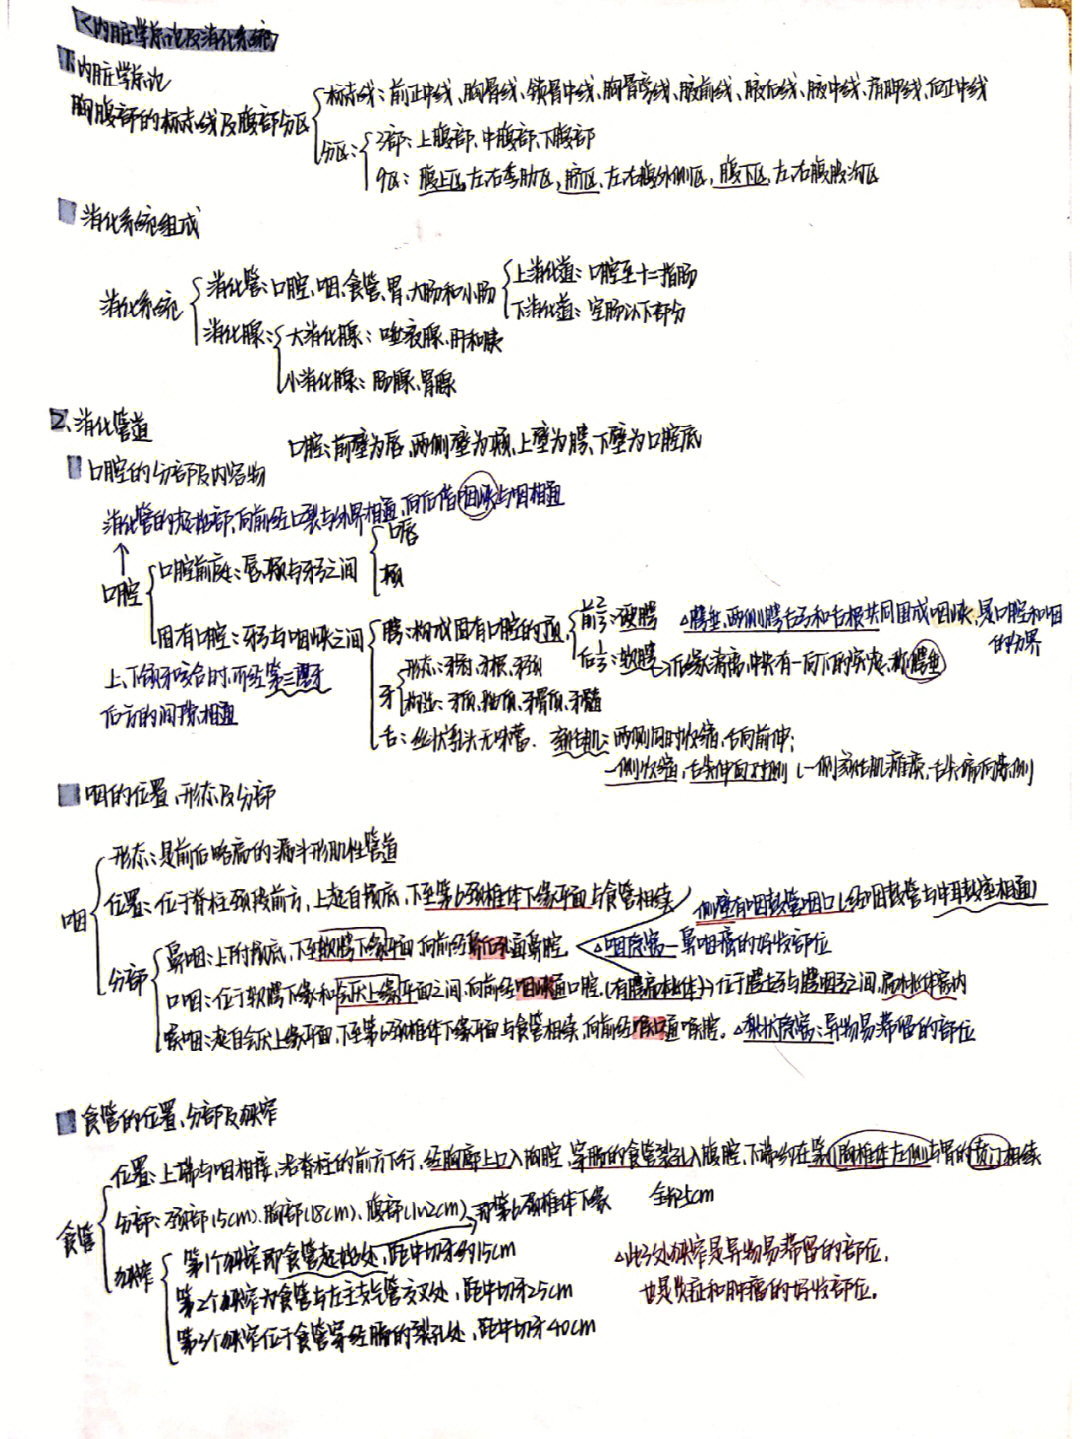 <内脏学总论及消化系统>
1.内脏学总论
胸腹部的标志线及腹部分区
标志线:前正中线、胸骨线、锁骨中线、胸骨旁线、腋前线、腋后线、腋中线、肩胛线、后正中线
分区:
3部:上腹部、中腹部、下腹部
9区:腹上区,左右季肋区,脐区、左右腹外侧区,腹下区、左右腹股沟区
消化系统组成
消化系统
消化管:口腔,咽、食管、胃、大肠和小肠
上消化道:口腔至十二指肠
下消化道:空肠以下部分
消化腺:
大消化腺:唾液腺、肝和胰
小消化腺:肠腺、胃腺
2、消化管道
口腔:前壁为唇,两侧壁为颊,上壁为腭、下壁为口腔底
口腔的分部及内容物
消化管的起始部,向前经口裂与外界相通,向后借咽峡与咽相通
口腔
口腔前庭:唇、颊与牙弓之间
口唇
颊
固有口腔:牙弓与咽峡之间
上、下颌牙咬合时,可经第三磨牙
后方的间隙相通
腭:构成固有口腔的顶,
前:硬腭
后:软腭→后缘游离,中央有一向下的突起,称腭垂
△腭垂、两侧腭舌弓和舌根共同围成咽峡,是口腔和咽
的分界
牙
形态:牙冠、牙根、牙颈
构造:牙质、釉质、牙骨质、牙髓
舌:丝状乳头无味蕾. 颏舌肌:两侧同时收缩,舌向前伸;
一侧收缩,舌尖伸向对侧 (一侧颏舌肌瘫痪,舌尖偏向患侧
咽的位置、形态及分部
咽
形态:是前后略扁的漏斗形肌性管道
位置:位于脊柱颈段前方,上起自颅底,下至第6颈椎体下缘平面与食管相续
分部
鼻咽:上附颅底,下至软腭下缘平面,向前经鼻后孔通鼻腔.
侧壁有咽鼓管咽口(经咽鼓管与中耳鼓室相通)
△咽隐窝—鼻咽癌的好发部位
口咽:位于软腭下缘和会厌上缘平面之间,向前经咽峡通口腔.(有腭扁桃体)→位于腭舌弓与腭咽弓之间,扁桃体窝内
喉咽:起自会厌上缘平面,下至第6颈椎体下缘平面与食管相续,向前经喉口通喉腔。△梨状隐窝:异物易滞留的部位
食管的位置、分部及狭窄
食管
位置:上端与咽相接,沿脊柱的前方下行,经胸廓上口入胸腔,穿膈的食管裂孔入腹腔,下端约在第11胸椎体左侧与胃的贲门相续
分部:颈部(5cm).胸部(18cm)、腹部(1~2cm) 即第6颈椎体下缘 全长25cm
狭窄
第1个狭窄即食管起始处,距中切牙约15cm
第2个狭窄为食管与左主支气管交叉处,距中切牙25cm
第3个狭窄位于食管穿经膈的裂孔处,距中切牙40cm
△此3处狭窄是异物易滞留的部位,
也是炎症和肿瘤的好发部位。